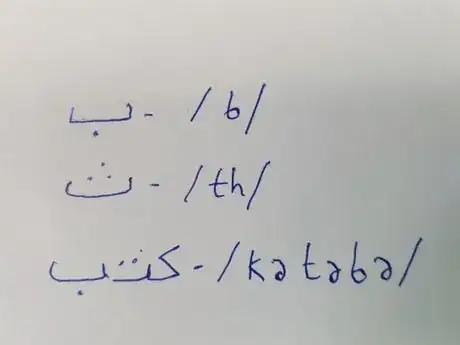 ب - /b/
ث - /th/
كتب - /kətəbə/